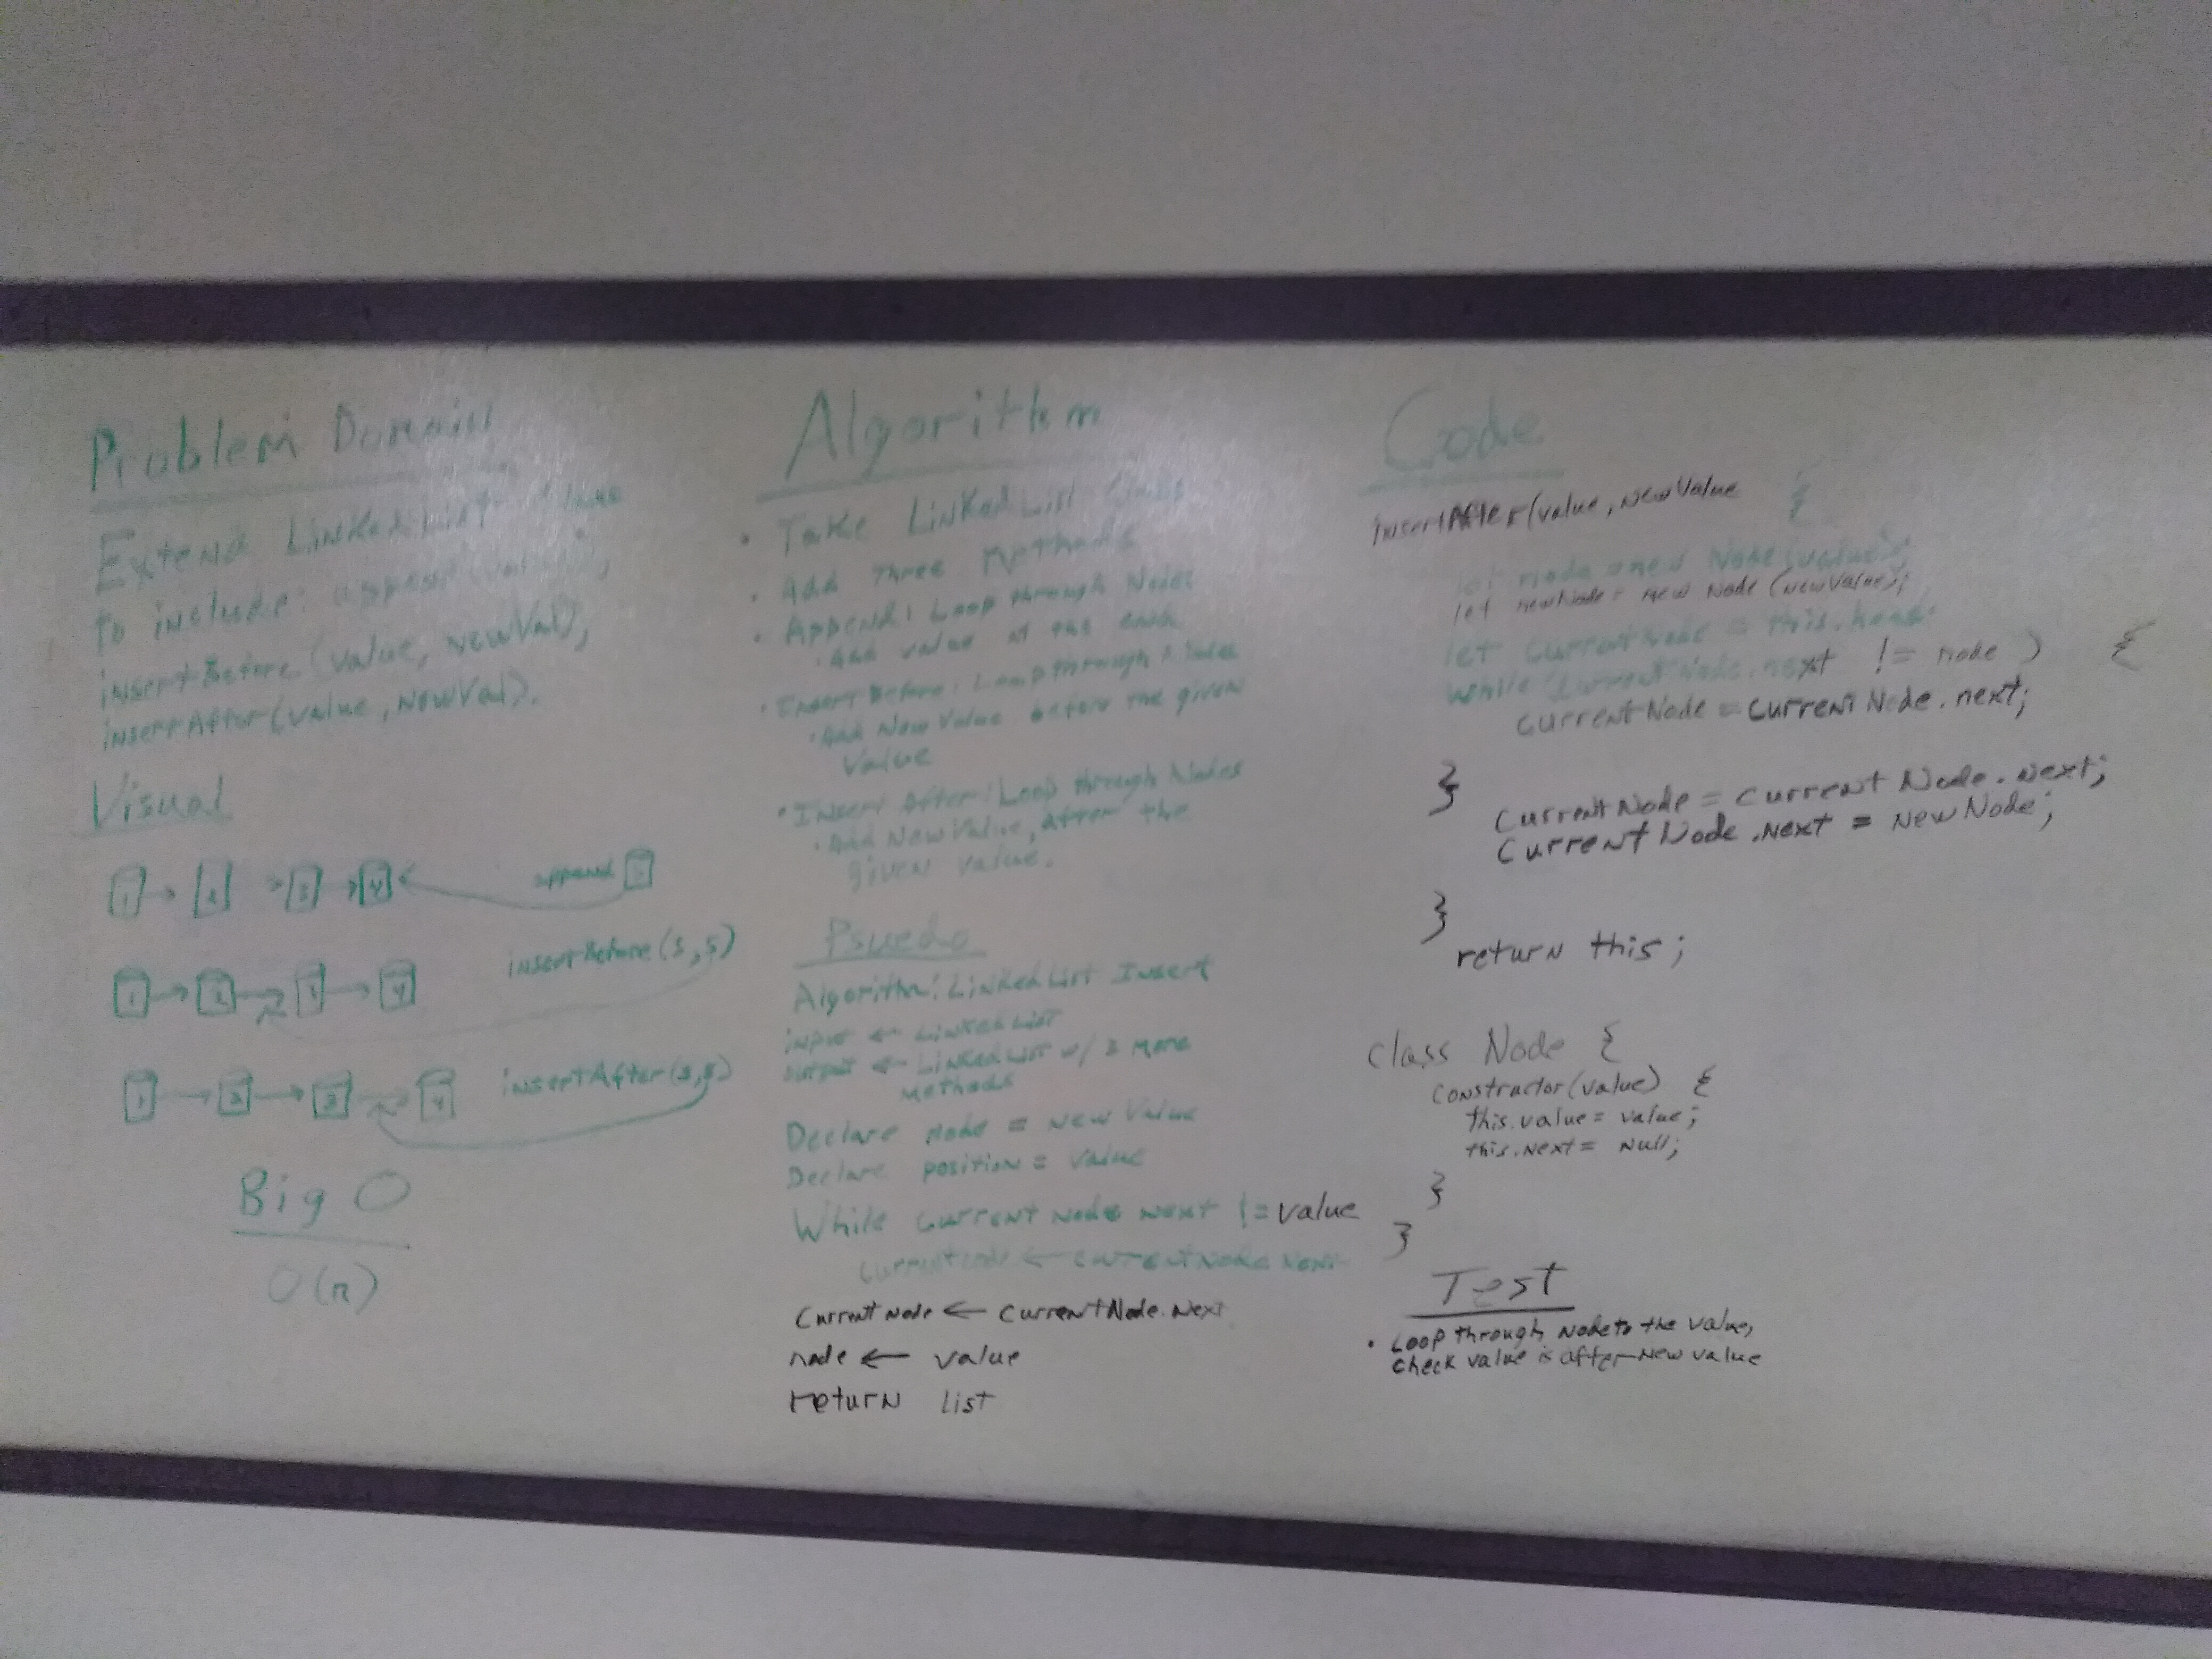 Problem Domain
Extend Linked List Class
to include: append(value),
insertBefore (value, newVal),
insertAfter(value, newVal).
Visual
1 → 2 → 3 → 4 append 5
1 → 2 → 3 → 4 insertBefore(3,5)
1 → 2 → 3 → 4 insertAfter(3,5)
Big O
O(n)
Algorithm
• Take Linked List Class
• Add Three Methods
• Append: Loop through Nodes
• Add value at the end
• Insert Before: Loop through Nodes
• Add New Value before the given
Value
• Insert After: Loop through Nodes
• Add New Value, after the
given value.
Psuedo
Algorithm: Linked List Insert
input ← Linked List
output ← Linked List w/ 3 more
methods
Declare Node = new Value
Declare position = value
While current node next != value
currentnode ← currentNode next
Current node ← currentNode.Next
node ← value
return list
Code
insertAfter(value, newValue {
let node = new Node(value);
let newNode = new Node (newValue);
let currentNode = this.head;
while (currentNode.next != node ) {
currentNode = currentNode.next;
}
currentNode = current Node.next;
current Node.next = newNode;
}
return this;
class Node {
constructor(value) {
this.value = value;
this.next = Null;
}
}
Test
• Loop through Node to the value,
check value is after new value